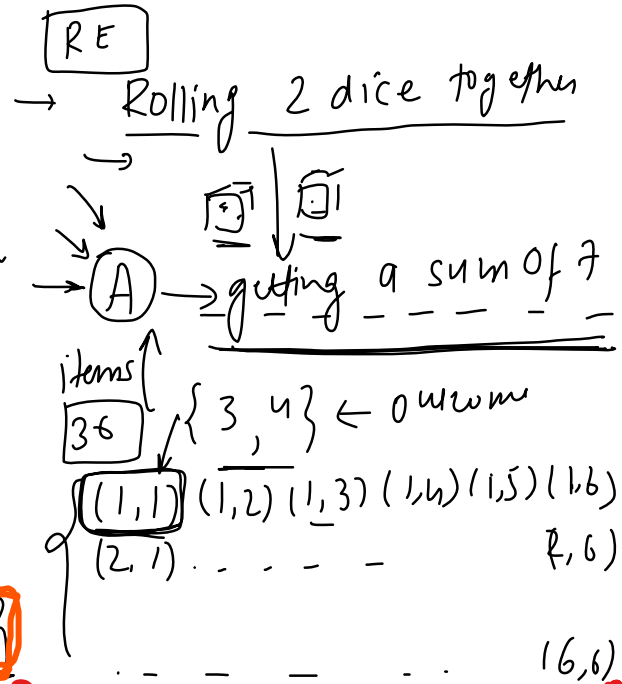 RE
→ Rolling 2 dice together
A → getting a sum of 7
items
36
{3,4} ← outcome
(1,1) (1,2) (1,3) (1,4) (1,5) (1,6)
(2,1) . . - - - 2,6)
. - - - . . (6,6)